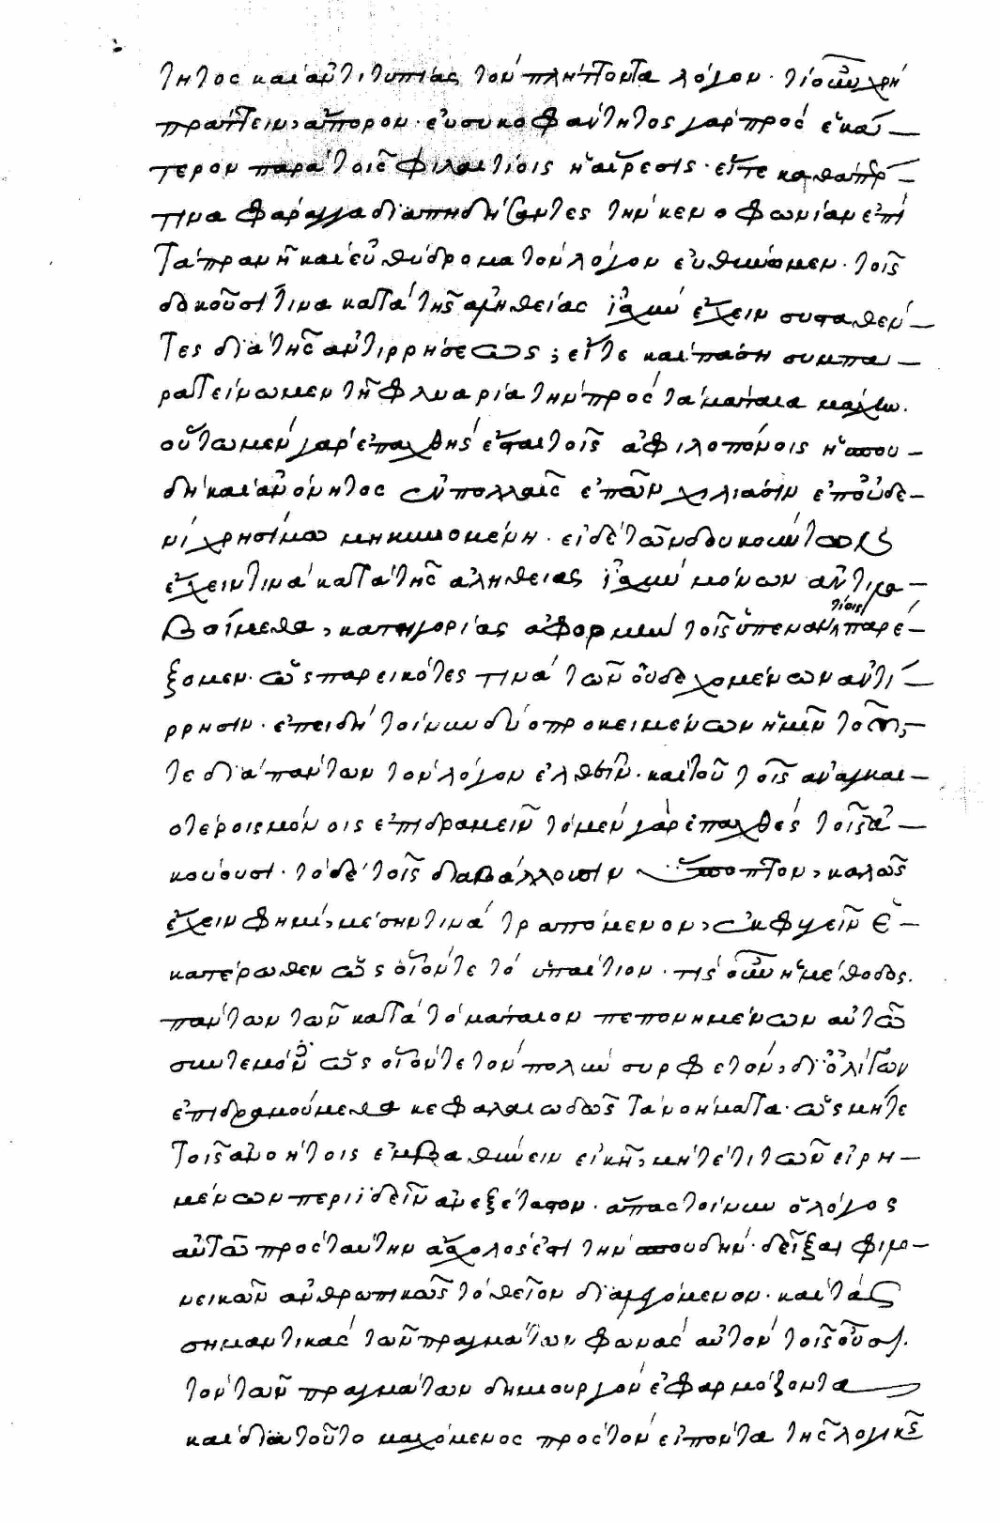 τητος καὶ ἀντιτυπίας τὸν πλήττοντα λόγον· τί οὖν χρὴ
πράττειν, ἄπορον· εὐσυκοφάντητος γὰρ πρὸς ἑκά
τερον παρὰ τοῖς φιλαιτίοις ἡ αἵρεσις· εἴτε καθάπερ
τινα φάραγγα διαπηδήσαντες τὴν κενοφωνίαν ἐπὶ
τὰ πρανῆ καὶ εὐθύδρομα τὸν λόγον εὐθύνομεν· τοῖς
δοκοῦσί τινα κατὰ τῆς ἀληθείας ἰσχὺν ἔχειν συσταθέν
τες διὰ τῆς ἀντιρρήσεως; εἴτε καὶ πάσῃ συμπα
ρατείνωμεν τῇ φλυαρίᾳ τὴν πρὸς τὰ μάταια μάχην.
οὕτω μὲν γὰρ ἐπαχθὴς ἔσται τοῖς ἀφιλοπόνοις ἡ σπου
δὴ καὶ ἀνόνητος ἐν πολλαῖς ἐπῶν χιλιάσιν ἐπ' οὐδε
νὶ χρησίμῳ μηκυνομένη· εἰ δὲ τῶν δοκούντων
ἔχειν τινὰ κατὰ τῆς ἀληθείας ἰσχὺν μόνων ἀντιλα
βοίμεθα, κατηγορίας ἀφορμὴν τοῖς ὑπεναντίοις παρέ
ξομεν· ὡς παρεικότες τινὰ τῶν οὐ δεχομένων ἀντί
ρρησιν· ἐπειδὴ τοίνυν δύο προκειμένων ἡμῖν τοῦ
τε διὰ πάντων τὸν λόγον ἐλθεῖν· καὶ τοῦ τοῖς ἀναγκαι
οτέροις μόνοις ἐπιδραμεῖν τὸ μὲν γὰρ ἐπαχθὲς τοῖς ἀ
κούουσι· τὸ δὲ τοῖς διαβάλλουσιν ὕποπτον, καλῶς
ἔχειν φημὶ, μέσην τινὰ τραπόμενον, ἐκφυγεῖν ἑ
κατέρωθεν ὡς οἷόν τε τὸ ὑπαίτιον· τίς οὖν ἡ μέθοδος.
πάντων τῶν κατὰ τὸ μάταιον πεπονημένων αὐτῷ
συντεμόντες ὡς οἷόν τε τὸν πολὺν συρφετόν, δι' ὀλίγων
ἐπιδραμούμεθα κεφαλαιωδῶς τὰ νοήματα· ὡς μήτε
τοῖς ἀνοήτοις ἐμβαθύνειν εἰκῇ, μήτέ τι τῶν εἰρη
μένων περιϊδεῖν ἀνεξέταστον· ἅπας τοίνυν ὁ λόγος
αὐτῷ πρὸς ταύτην ἄσχολός ἐστι τὴν σπουδήν· δεῖξαι φιλο
νεικῶν ἀνθρωπικῶς τὸ θεῖον διαλεγόμενον· καὶ τὰς
σημαντικὰς τῶν πραγμάτων φωνὰς αὐτὸν τοῖς οὖσι.
τὸν τῶν πραγμάτων δημιουργὸν ἐφαρμόζοντα
καὶ διὰ τοῦτο μαχόμενος πρὸς τὸν εἰπόντα τῆς λογικῆς